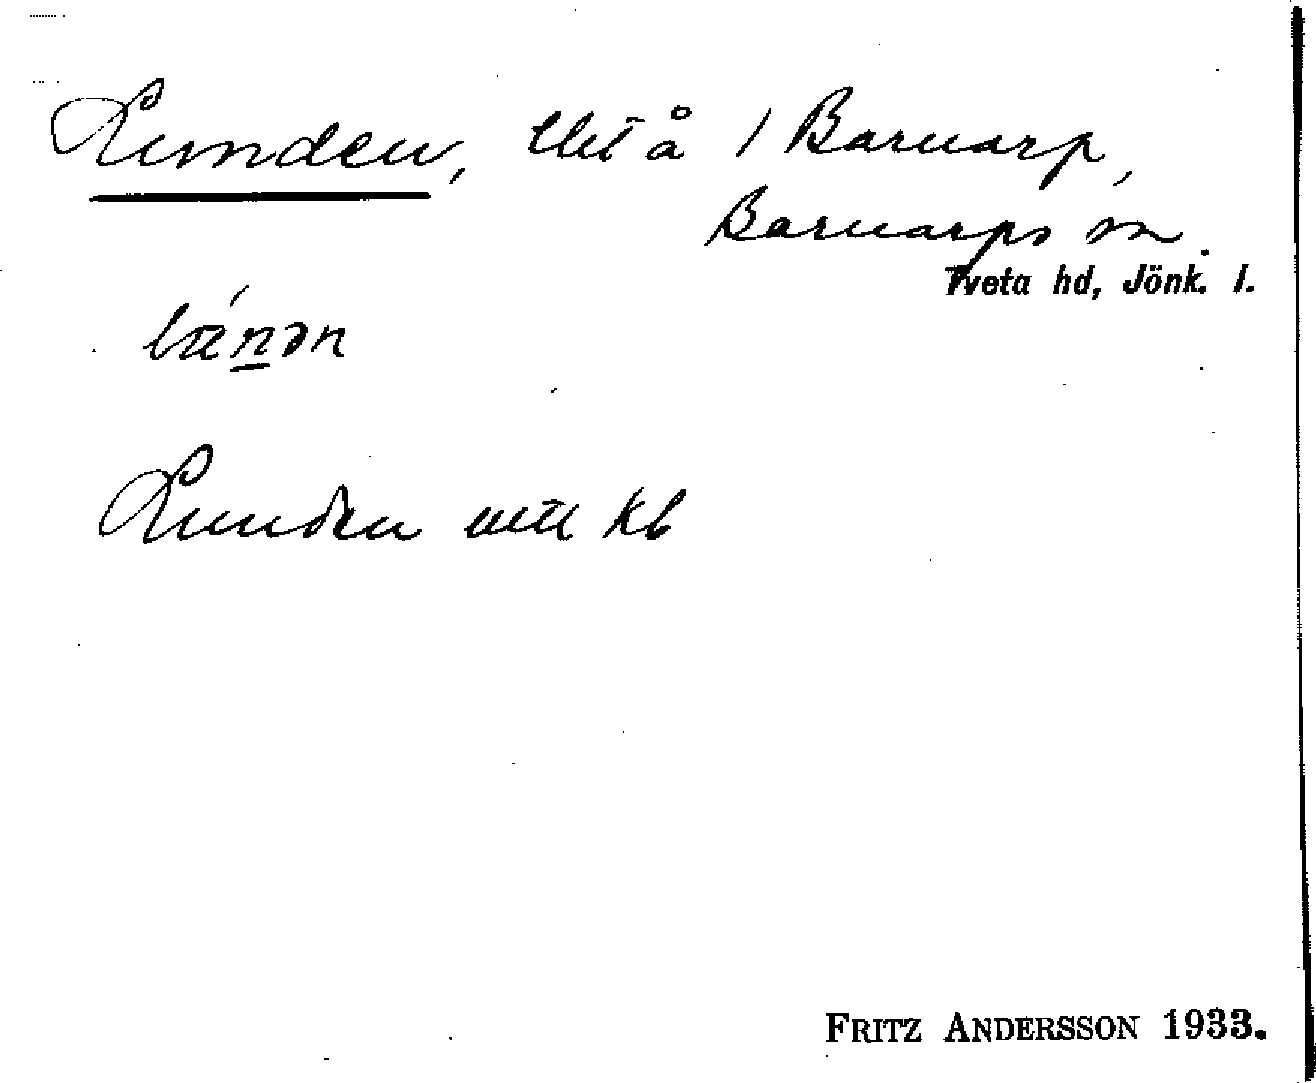 Lunden, lht å 1 Barnarp,
Barnarps sn.
Tveta hd, Jönk. l.
Lunden utt kb
FRITZ ANDERSSON 1933.